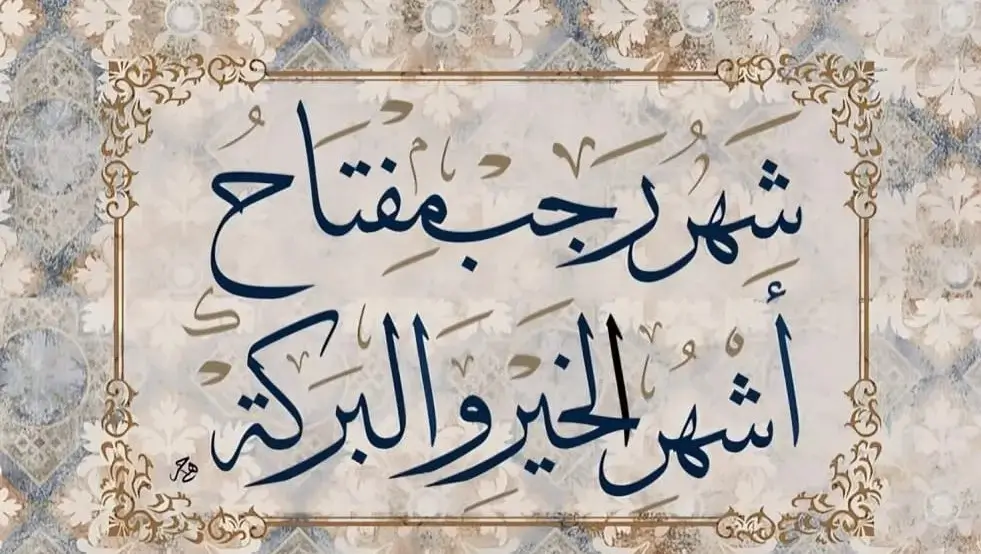 شَهْرُ رَجَبٍ مِفْتَاحُ
أَشْهُرِ الْخَيْرِ وَالْبَرَكَةِ